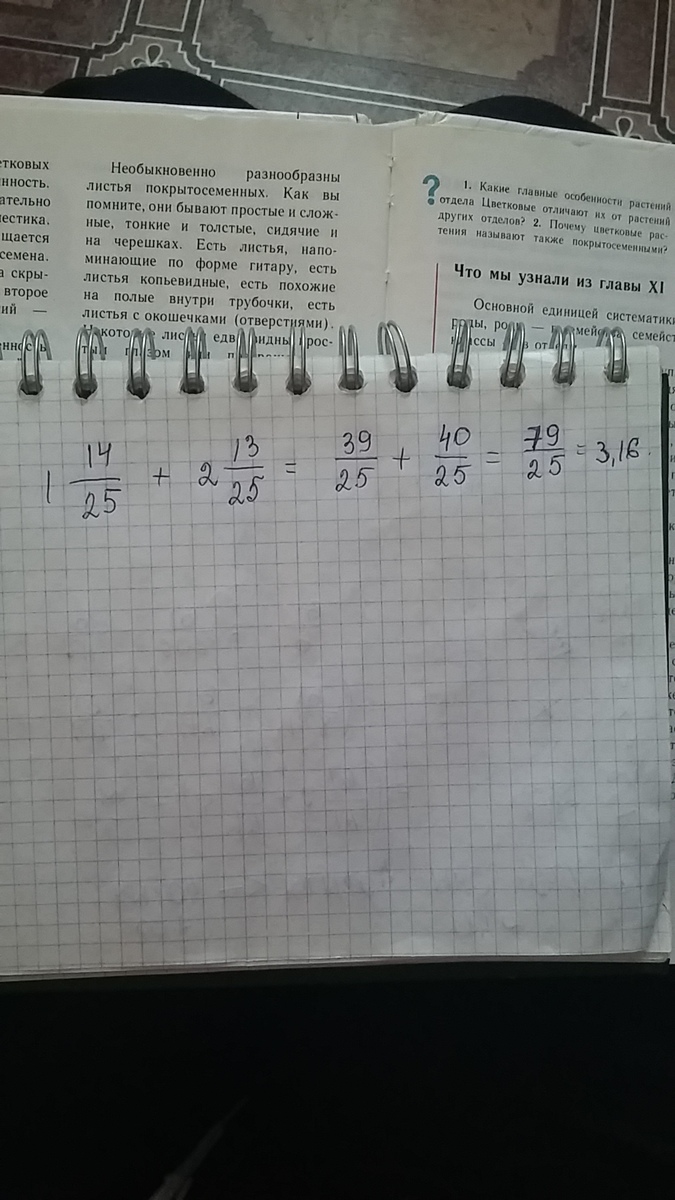 етковых
нность.
ательно
местика.
щается
семена.
а скры-
второе
ий —
Необыкновенно разнообразны
листья покрытосеменных. Как вы
помните, они бывают простые и слож-
ные, тонкие и толстые, сидячие и
на черешках. Есть листья, напо-
минающие по форме гитару, есть
листья копьевидные, есть похожие
на полые внутри трубочки, есть
листья с окошечками (отверстиями).
? 1. Какие главные особенности растений
отдела Цветковые отличают их от растений
других отделов? 2. Почему цветковые рас-
тения называют также покрытосеменными?
Что мы узнали из главы XI
Основной единицей систематики
1 14/25 + 2 13/25 = 39/25 + 40/25 = 79/25 = 3,16.